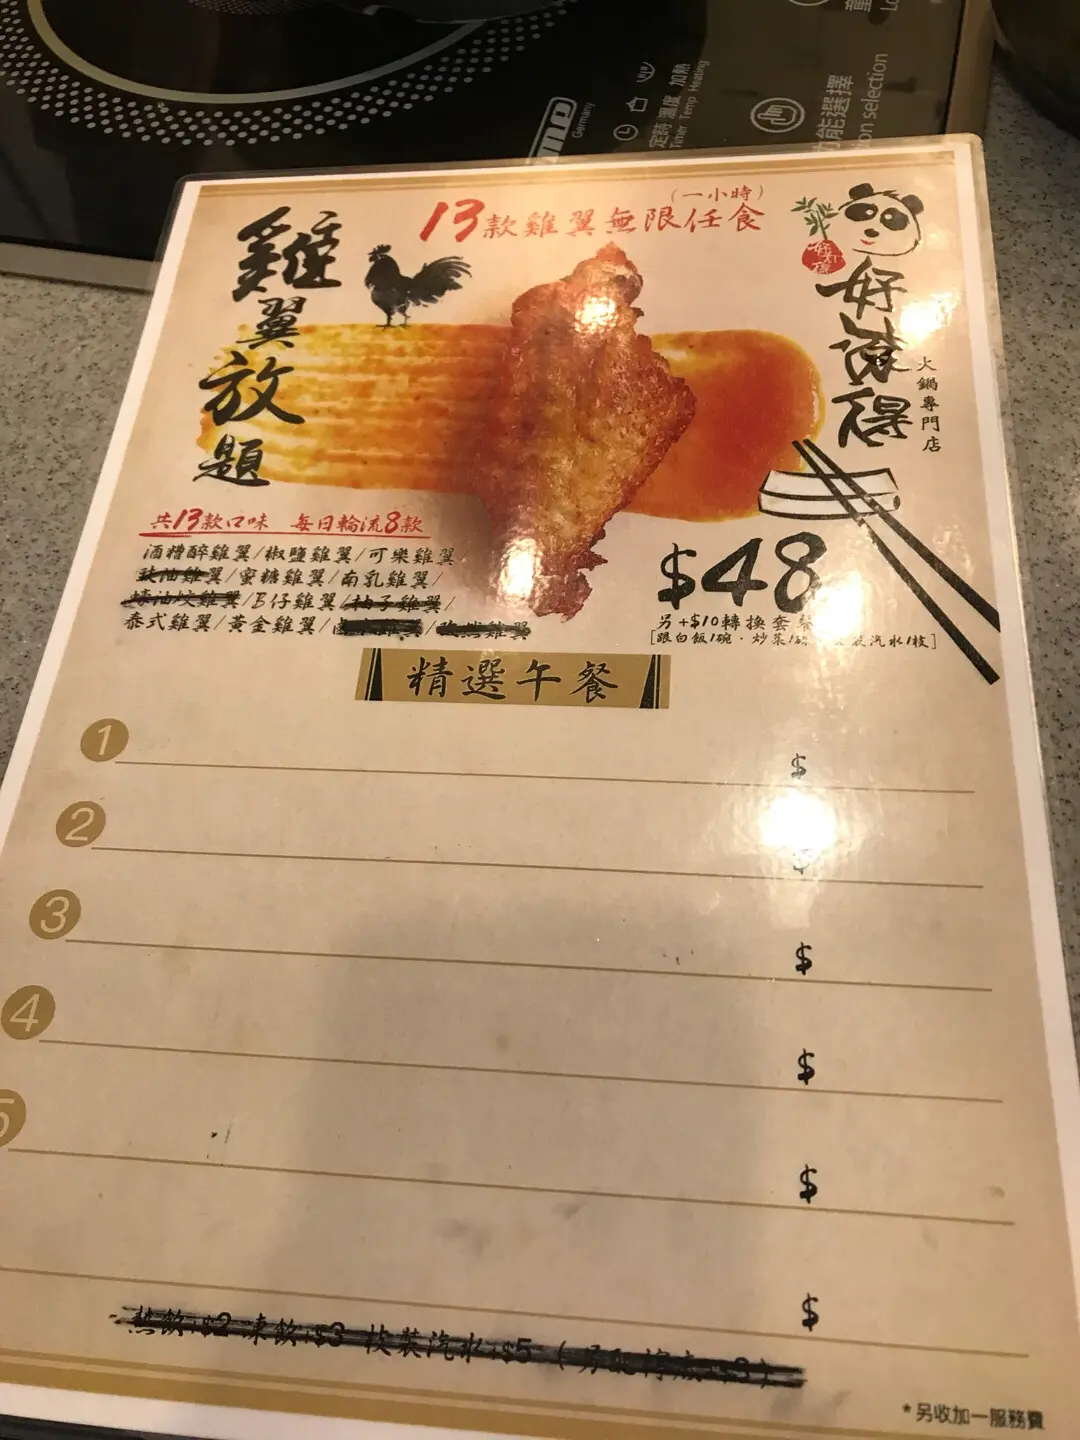 定時 溫度 加熱
Timer Temp Heating
Germany
功能選擇
on selection
(一小時)
13款雞翼無限任食
雞翼放題
好湯得
火鍋專門店
共13款口味 每日輪流8款
酒糟醉雞翼/椒鹽雞翼/可樂雞翼/
豉油雞翼/蜜糖雞翼/南乳雞翼/
蠔油炆雞翼/B仔雞翼/柚子雞翼/
泰式雞翼/黃金雞翼/
$48
另+$10轉換套餐
[跟白飯1碗.炒菜1 汽水1枝]
精選午餐
1 $
2 $
3 $
4 $
5 $
$
熱飲+$2 凍飲+$3 枝裝汽水+$5
*另收加一服務費